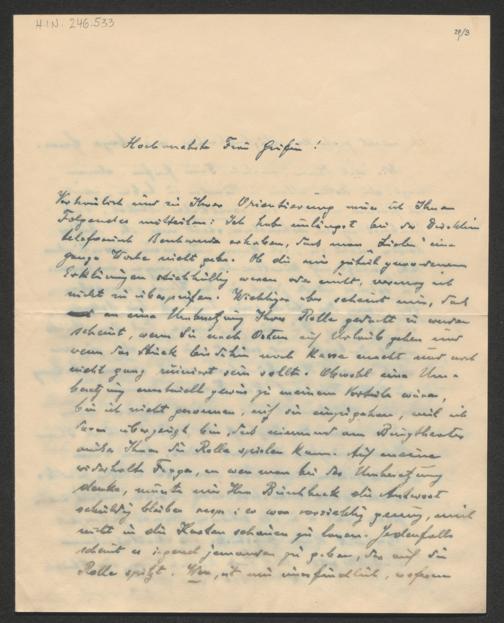 H.I.N. 246.533
29/3
Hochverehrte Frau Gräfin!
Vertraulich und zu Ihrer Orientierung muss ich Ihnen
Folgendes mitteilen: Ich habe unlängst bei der Direktion
telefonisch Beschwerde erhoben, dass man „Liebe" eine
ganze Woche nicht gebe. Ob die mir zuteil gewordenen
Erklärungen stichhältig waren oder nicht, vermag ich
nicht zu überprüfen. Wichtiger aber scheint mir, dass
an eine Umbesetzung Ihrer Rolle gedacht zu werden
scheint, wenn Sie nach Ostern auf Urlaub gehen und
wenn das Stück bis dahin noch Kassa macht und noch
nicht ganz ruiniert sein sollte. Obwohl eine Um-
besetzung eventuell gewiss zu meinem Vorteile wäre,
bin ich nicht gesonnen, auf sie einzugehen, weil ich
davon überzeugt bin, dass niemand am Burgtheater
außer Ihnen die Rolle spielen kann. Auf meine
wiederholte Frage, an wen man bei der Umbesetzung
denke, musste mir Herr Buschbeck die Antwort
schuldig bleiben resp.: er war vorsichtig genug, mich
nicht in die Karten schauen zu lassen. Jedenfalls
scheint es irgend jemanden zu geben, der auf die
Rolle spitzt. Wer, ist mir unerfindlich, insofern